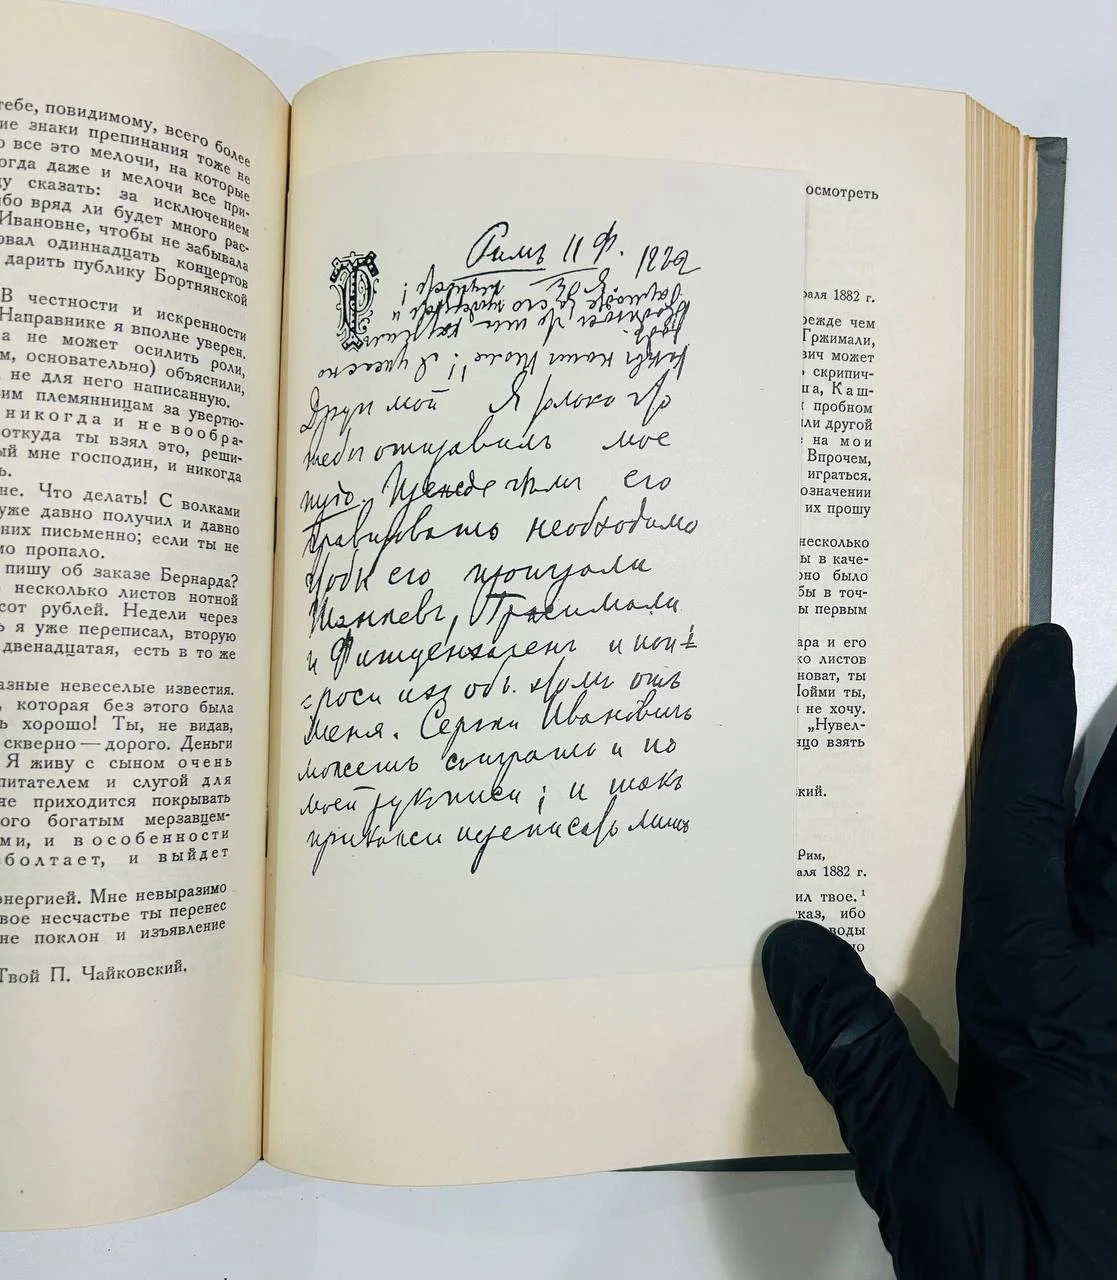 тебе, повидимому, всего более
ие знаки препинания тоже не
о все это мелочи, на которые
огда даже и мелочи все при-
ду сказать: за исключением
ибо вряд ли будет много рас-
Ивановне, чтобы не забывала
овал одиннадцать концертов
дарить публику Бортнянской
В честности и искренности
Направнике я вполне уверен.
а не может осилить роли,
м, основательно) объяснили,
не для него написанную.
им племянницам за увертю-
никогда и не вообра-
откуда ты взял это, реши-
ый мне господин, и никогда
ь.
не. Что делать! С волками
уже давно получил и давно
них письменно; если ты не
мо пропало.
пишу об заказе Бернарда?
несколько листов нотной
сот рублей. Недели через
ь я уже переписал, вторую
двенадцатая, есть в то же
азные невеселые известия.
, которая без этого была
ь хорошо! Ты, не видав,
скверно — дорого. Деньги
Я живу с сыном очень
питателем и слугой для
не приходится покрывать
ого богатым мерзавцем-
ми, и в особенности
болтает, и выйдет
энергией. Мне невыразимо
вое несчастье ты перенес
не поклон и изъявление
Твой П. Чайковский.
Римъ 11 ф. 1882
Другъ мой Я только что
отправилъ мое
тріо. Прежде чѣмъ его
гравировать необходимо
чтобы его проиграли
Танѣевъ, Гржимали
и Фитценхагенъ и
проси ихъ объ этомъ отъ
меня. Сергѣй Ивановичъ
можетъ сыграть и по
моей рукописи; и такъ
прикажи переписать лишь
осмотреть
раля 1882 г.
режде чем
Гржимали,
вич может
скрипич-
ша, Каш-
пробном
ли другой
на мои
Впрочем,
играться.
означении
их прошу
несколько
ы в каче-
оно было
бы в точ-
ы первым
ара и его
ко листов
новат, ты
Пойми ты,
и не хочу.
„Нувел-
нцо взять
ский.
Рим,
аля 1882 г.
ил твое.¹
каз, ибо
воды
но